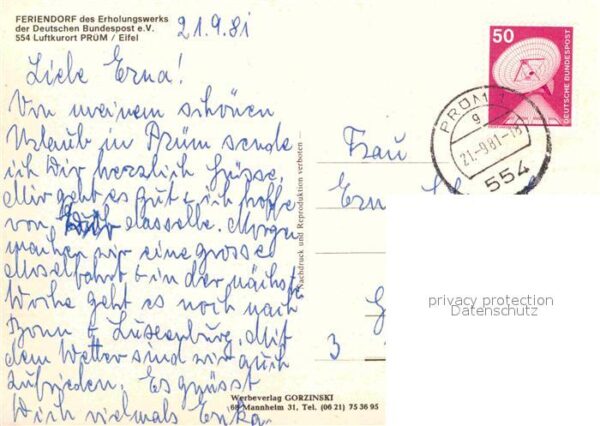 FERIENDORF des Erholungswerks
der Deutschen Bundespost e.V.
554 Luftkurort PRÜM / Eifel
21.9.81
Liebe Erna!
Von meinem schönen
Urlaub in Prüm sende
ich Dir herzlich Grüsse.
Mir geht es gut & ich hoffe
von Dir dasselbe. Morgen
machen wir eine grosse
Moselfahrt & in der nächste
Woche geht es noch nach
Bonn & Luxemburg. Mit
dem Wetter sind wir auch
zufrieden. Es grüsst
Dich vielmals Erika.
Nachdruck und Reproduktion verboten
Werbeverlag GORZINSKI
68 Mannheim 31, Tel. (06 21) 75 36 95
50
DEUTSCHE BUNDESPOST
PRÜM 1
g
21.-9.81-18
554
Frau
3
privacy protection
Datenschutz